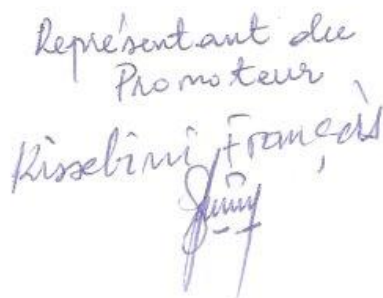 Représentant du
Promoteur
Kissebini François